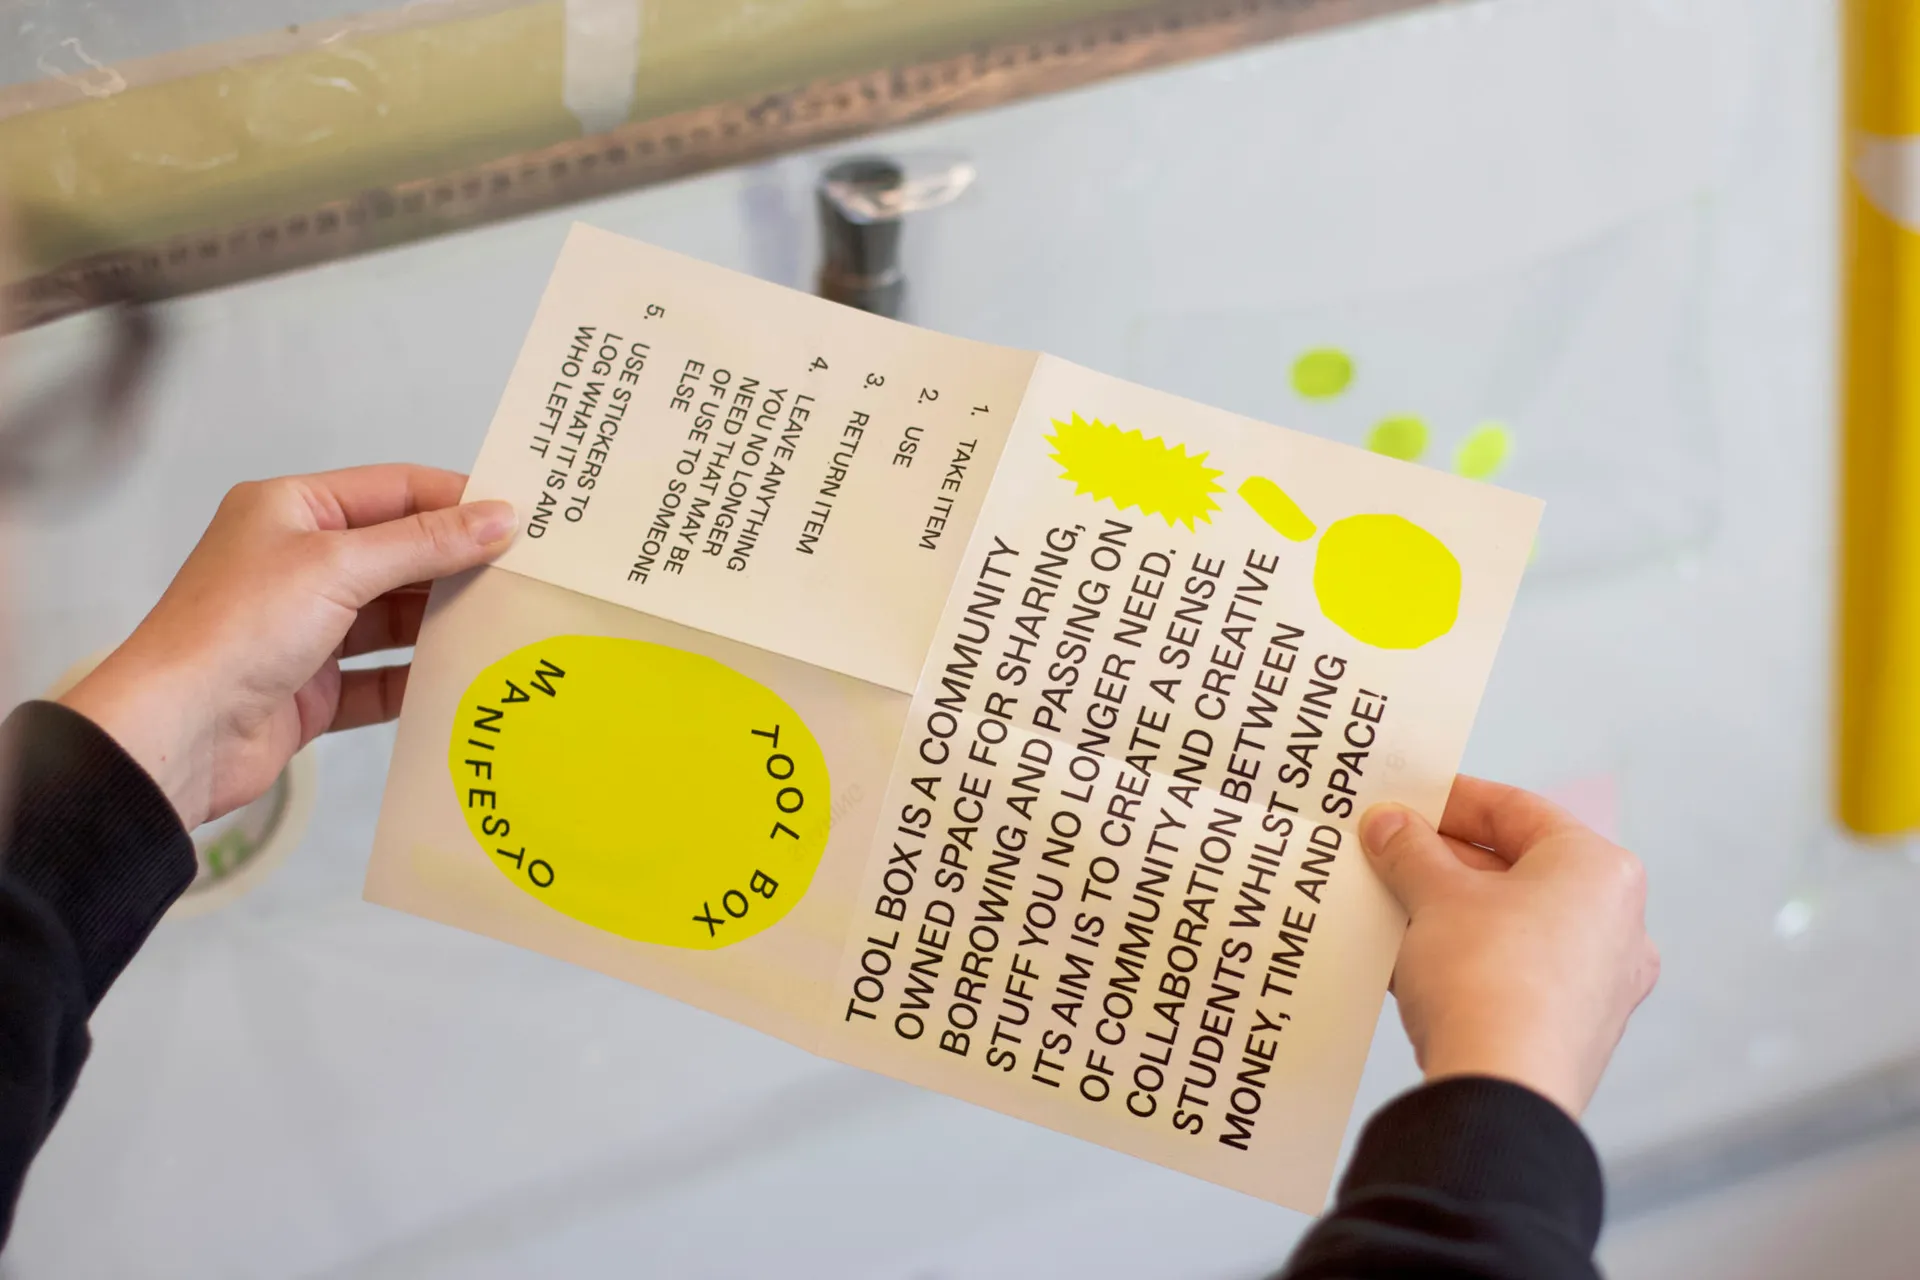 TOOL BOX
MANIFESTO
1. TAKE ITEM
2. USE
3. RETURN ITEM
4. LEAVE ANYTHING
YOU NO LONGER
NEED THAT MAY BE
OF USE TO SOMEONE
ELSE
5. USE STICKERS TO
LOG WHAT IT IS AND
WHO LEFT IT
TOOL BOX IS A COMMUNITY
OWNED SPACE FOR SHARING,
BORROWING AND PASSING ON
STUFF YOU NO LONGER NEED.
ITS AIM IS TO CREATE A SENSE
OF COMMUNITY AND CREATIVE
COLLABORATION BETWEEN
STUDENTS WHILST SAVING
MONEY, TIME AND SPACE!